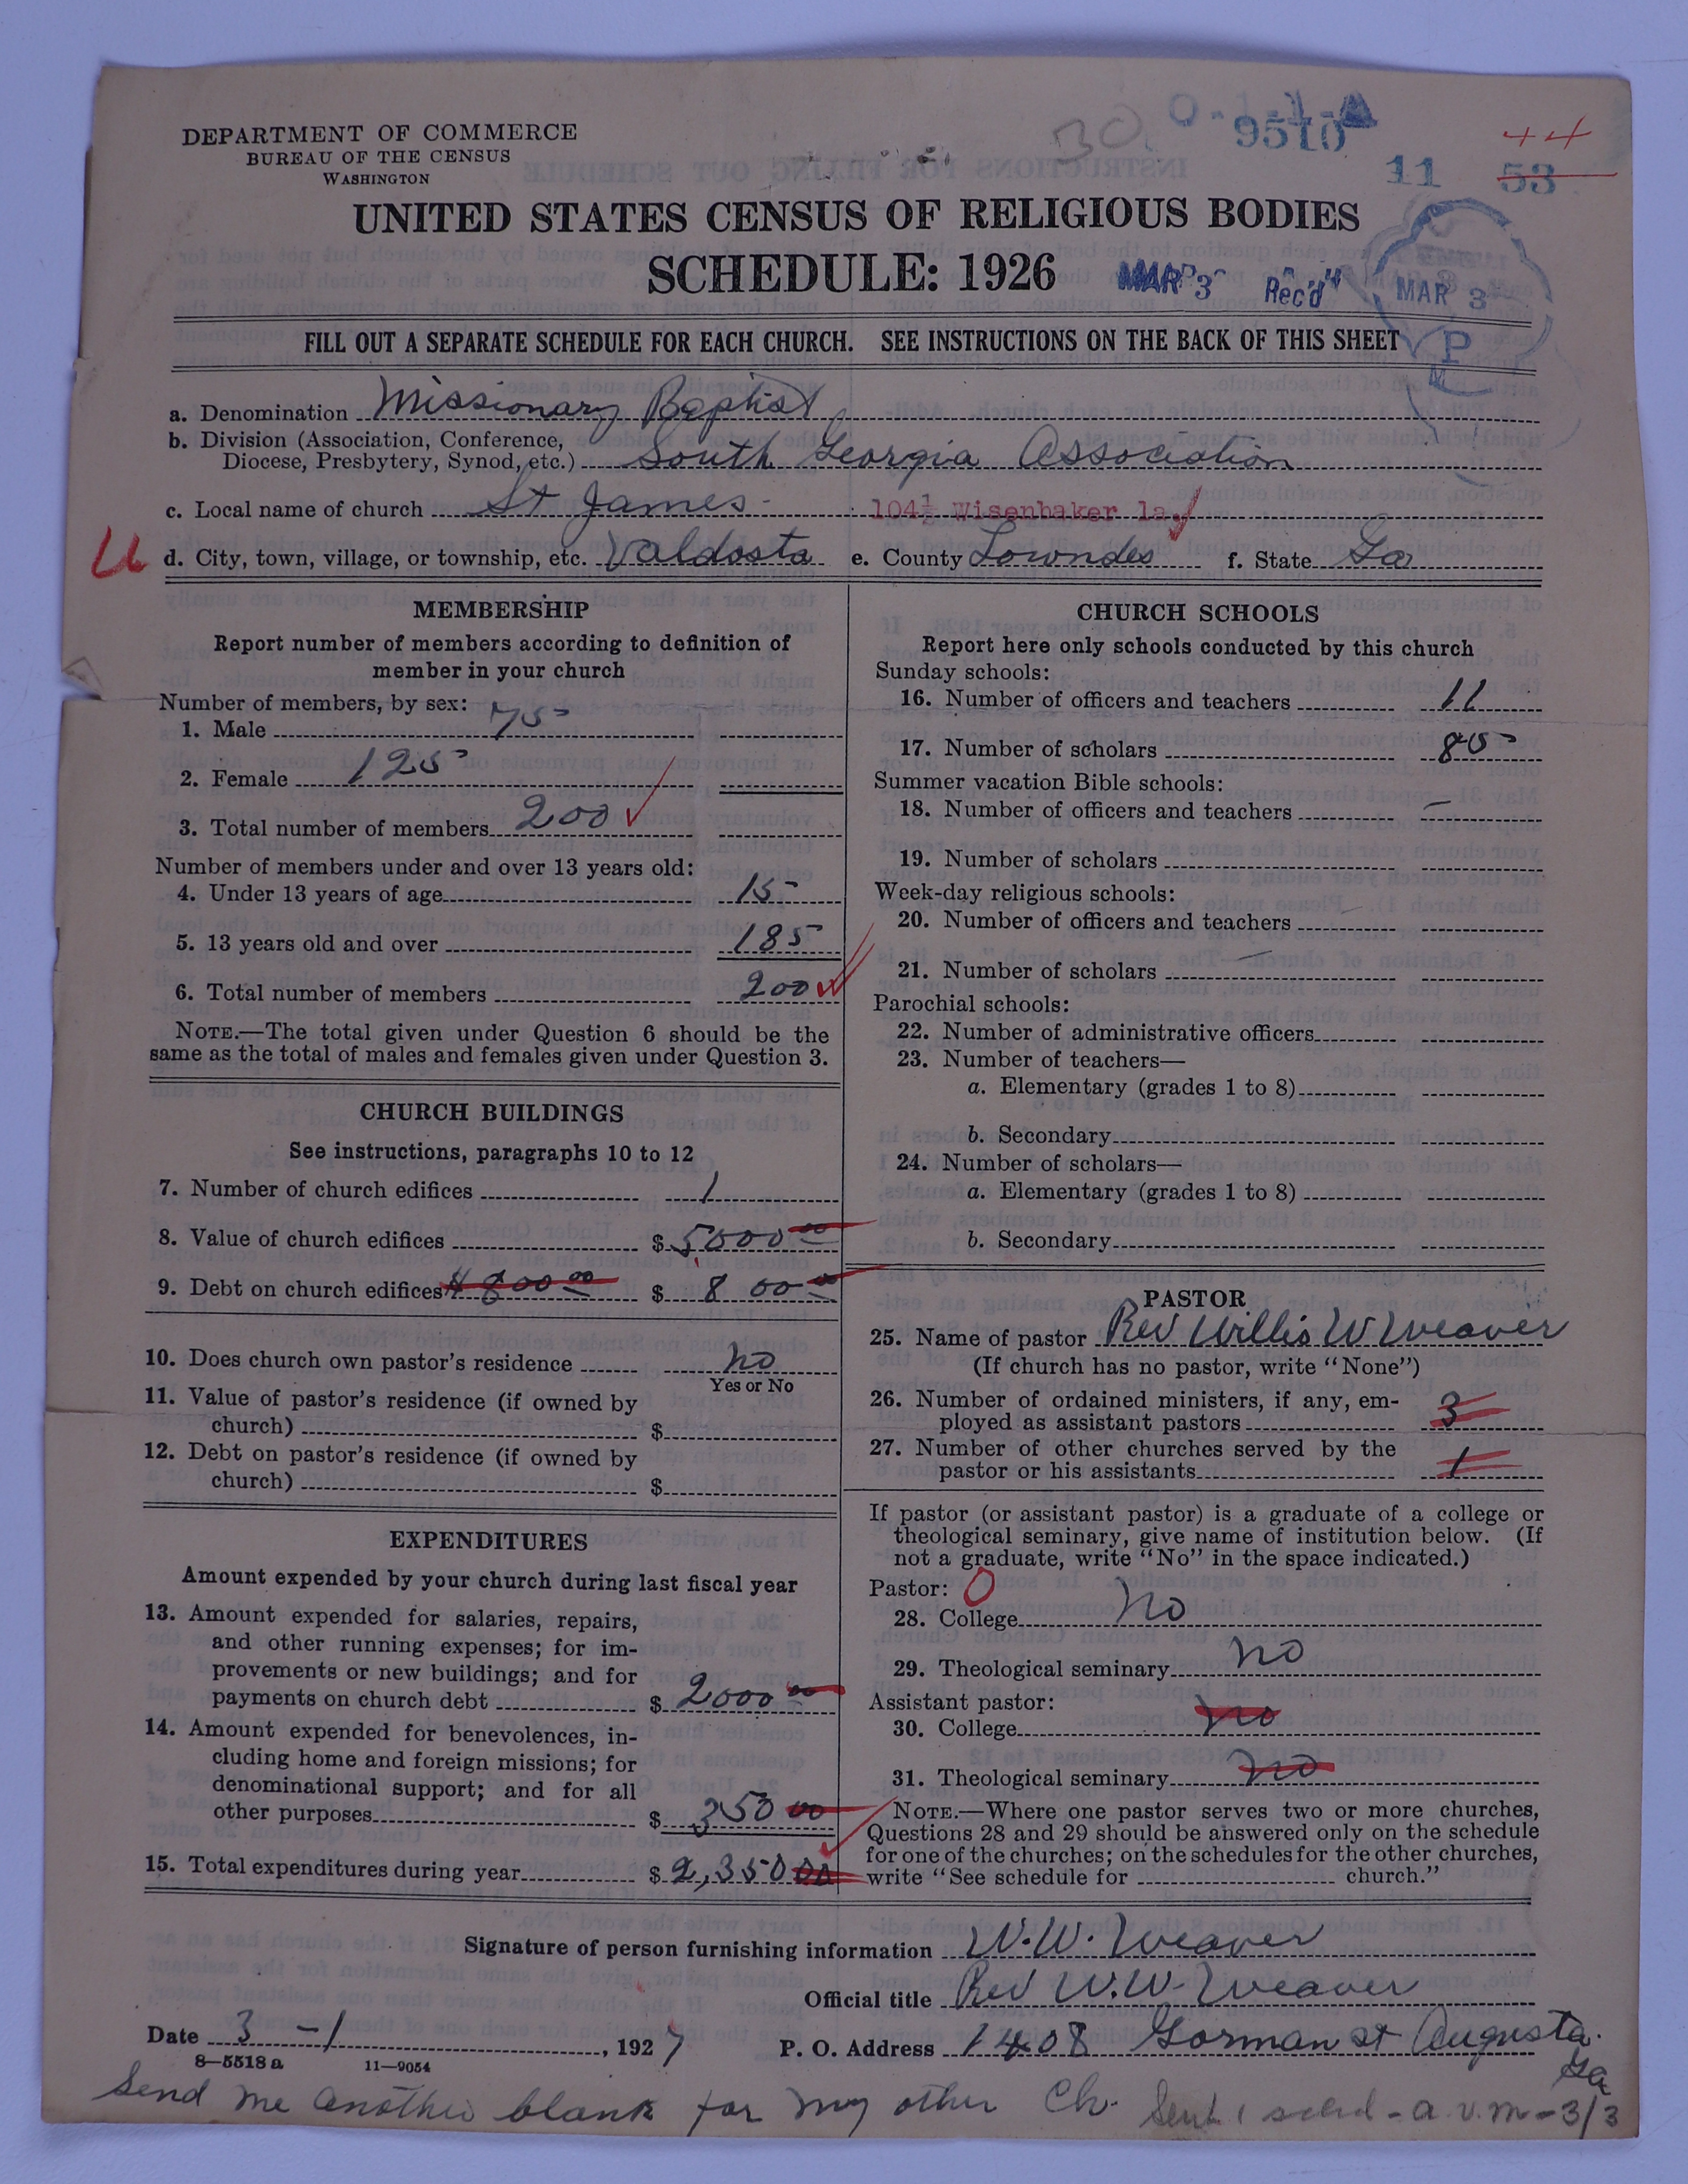 30.
9510
44
11 53
DEPARTMENT OF COMMERCE
BUREAU OF THE CENSUS
WASHINGTON
UNITED STATES CENSUS OF RELIGIOUS BODIES
SCHEDULE: 1926
MAR 3 Rec'd
MAR 3
P
M
FILL OUT A SEPARATE SCHEDULE FOR EACH CHURCH. SEE INSTRUCTIONS ON THE BACK OF THIS SHEET
a. Denomination Missionary Baptist
b. Division (Association, Conference,
Diocese, Presbytery, Synod, etc.) South Georgia Association
c. Local name of church St James 104½ Wisenbaker la.
U d. City, town, village, or township, etc. Valdosta e. County Lowndes f. State Ga
MEMBERSHIP
Report number of members according to definition of
member in your church
Number of members, by sex:
1. Male 75
2. Female 125
3. Total number of members 200
Number of members under and over 13 years old:
4. Under 13 years of age 15
5. 13 years old and over 185
6. Total number of members 200
NOTE.—The total given under Question 6 should be the
same as the total of males and females given under Question 3.
CHURCH BUILDINGS
See instructions, paragraphs 10 to 12
7. Number of church edifices 1
8. Value of church edifices $ 5000 00
9. Debt on church edifices $800 00 $ 800 00
10. Does church own pastor's residence no
Yes or No
11. Value of pastor's residence (if owned by
church) $
12. Debt on pastor's residence (if owned by
church) $
EXPENDITURES
Amount expended by your church during last fiscal year
13. Amount expended for salaries, repairs,
and other running expenses; for im-
provements or new buildings; and for
payments on church debt $ 2000 00
14. Amount expended for benevolences, in-
cluding home and foreign missions; for
denominational support; and for all
other purposes $ 350 00
15. Total expenditures during year $ 2,350 00
CHURCH SCHOOLS
Report here only schools conducted by this church
Sunday schools:
16. Number of officers and teachers 11
17. Number of scholars 85
Summer vacation Bible schools:
18. Number of officers and teachers –
19. Number of scholars
Week-day religious schools:
20. Number of officers and teachers
21. Number of scholars
Parochial schools:
22. Number of administrative officers
23. Number of teachers—
a. Elementary (grades 1 to 8)
b. Secondary
24. Number of scholars—
a. Elementary (grades 1 to 8)
b. Secondary
PASTOR
25. Name of pastor Rev Willis W Weaver
(If church has no pastor, write "None")
26. Number of ordained ministers, if any, em-
ployed as assistant pastors 3
27. Number of other churches served by the
pastor or his assistants 1
If pastor (or assistant pastor) is a graduate of a college or
theological seminary, give name of institution below. (If
not a graduate, write "No" in the space indicated.)
Pastor: 0
28. College no
29. Theological seminary no
Assistant pastor:
30. College no
31. Theological seminary no
NOTE.—Where one pastor serves two or more churches,
Questions 28 and 29 should be answered only on the schedule
for one of the churches; on the schedules for the other churches,
write "See schedule for church."
Signature of person furnishing information W.W. Weaver
Official title Rev W.W. Weaver
Date 3 - 1, 1927 P. O. Address 1408 Gorman st Augusta.
Ga
8—5518 a 11—9054
Send me another blank for my other Ch. Sent 1 sched - a.v.m - 3/3